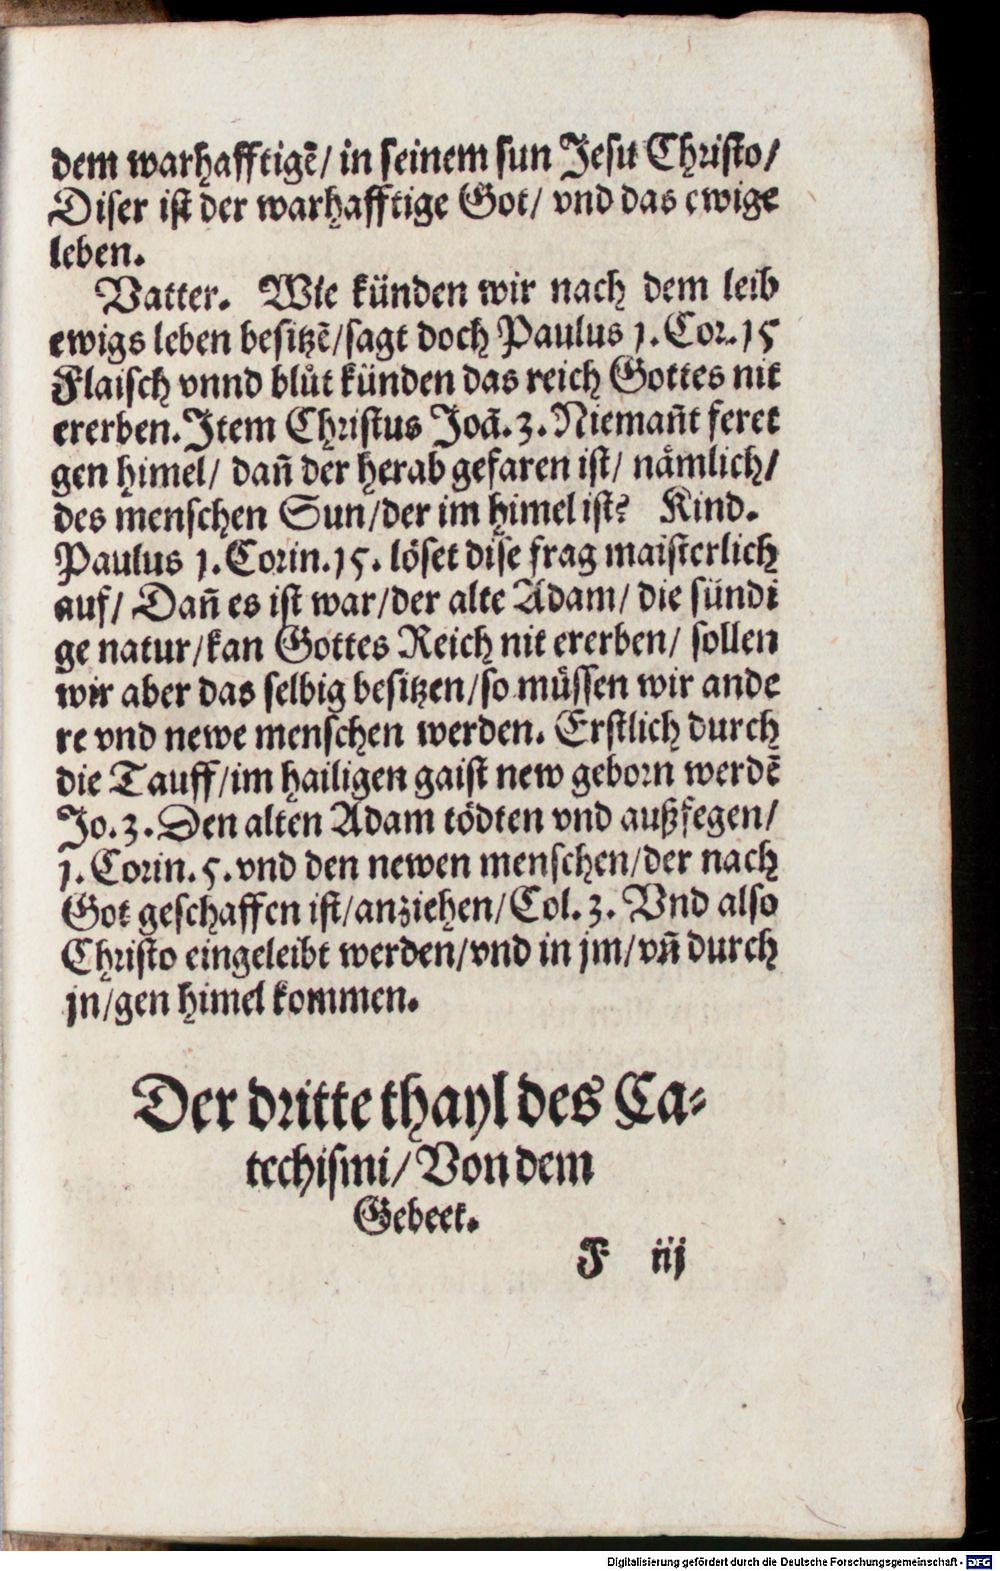 dem warhafftigẽ/ in seinem sun Jesu Christo/
Diser ist der warhafftige Got/ vnd das ewige
leben.
Vatter. Wie künden wir nach dem leib
ewigs leben besitzẽ/sagt doch Paulus 1. Cor. 15
Flaisch vnnd blůt künden das reich Gottes nit
ererben. Item Christus Joã. 3. Niemañt feret
gen himel/ dañ der herab gefaren ist/ nämlich/
des menschen Sun/der im himel ist? Kind.
Paulus 1. Corin. 15. löset dise frag maisterlich
auf/ Dañ es ist war/der alte Adam/ die sündi
ge natur/kan Gottes Reich nit ererben/ sollen
wir aber das selbig besitzen/so müssen wir ande
re vnd newe menschen werden. Erstlich durch
die Tauff/im hailigen gaist new geborn werdẽ
Jo. 3. Den alten Adam tödten vnd außfegen/
1. Corin. 5. vnd den newen menschen/der nach
Got geschaffen ist/anziehen/Col. 3. Vnd also
Christo eingeleibt werden/vnd in jm/vñ durch
jn/gen himel kommen.
Der dritte thayl des Ca-
techismi/ Von dem
Gebeet.
F iij
Digitalisierung gefördert durch die Deutsche Forschungsgemeinschaft - DFG